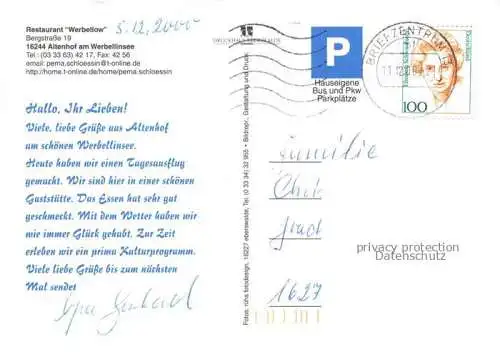 Restaurant "Werbellow"
Bergstraße 19
16244 Altenhof am Werbellinsee
Tel.: (03 33 63) 42 17, Fax: 42 56
email: pema.schloessin@t-online.de
http://home.t-online.de/home/pema.schloessin
5.12.2000
Hallo, Ihr Lieben!
Viele, liebe Grüße aus Altenhof
am schönen Werbellinsee.
Heute haben wir einen Tagesausflug
gemacht. Wir sind hier in einer schönen
Gaststätte. Das Essen hat sehr gut
geschmeckt. Mit dem Wetter haben wir
wie immer Glück gehabt. Zur Zeit
erleben wir ein prima Kulturprogramm.
Viele liebe Grüße bis zum nächsten
Mal sendet
Fotos: rühs fotodesign, 16227 eberswalde, Tel. (0 33 34) 32 955 • Bildrepr., Gestaltung und Druck:
P
Hauseigene
Bus und Pkw
Parkplätze
BRIEFZENTRUM
Deutschland
100
Familie
1627
privacy protection
Datenschutz